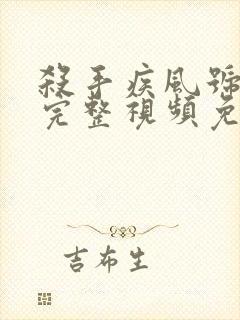 殺手疾風號
完整視頻免
吉布生